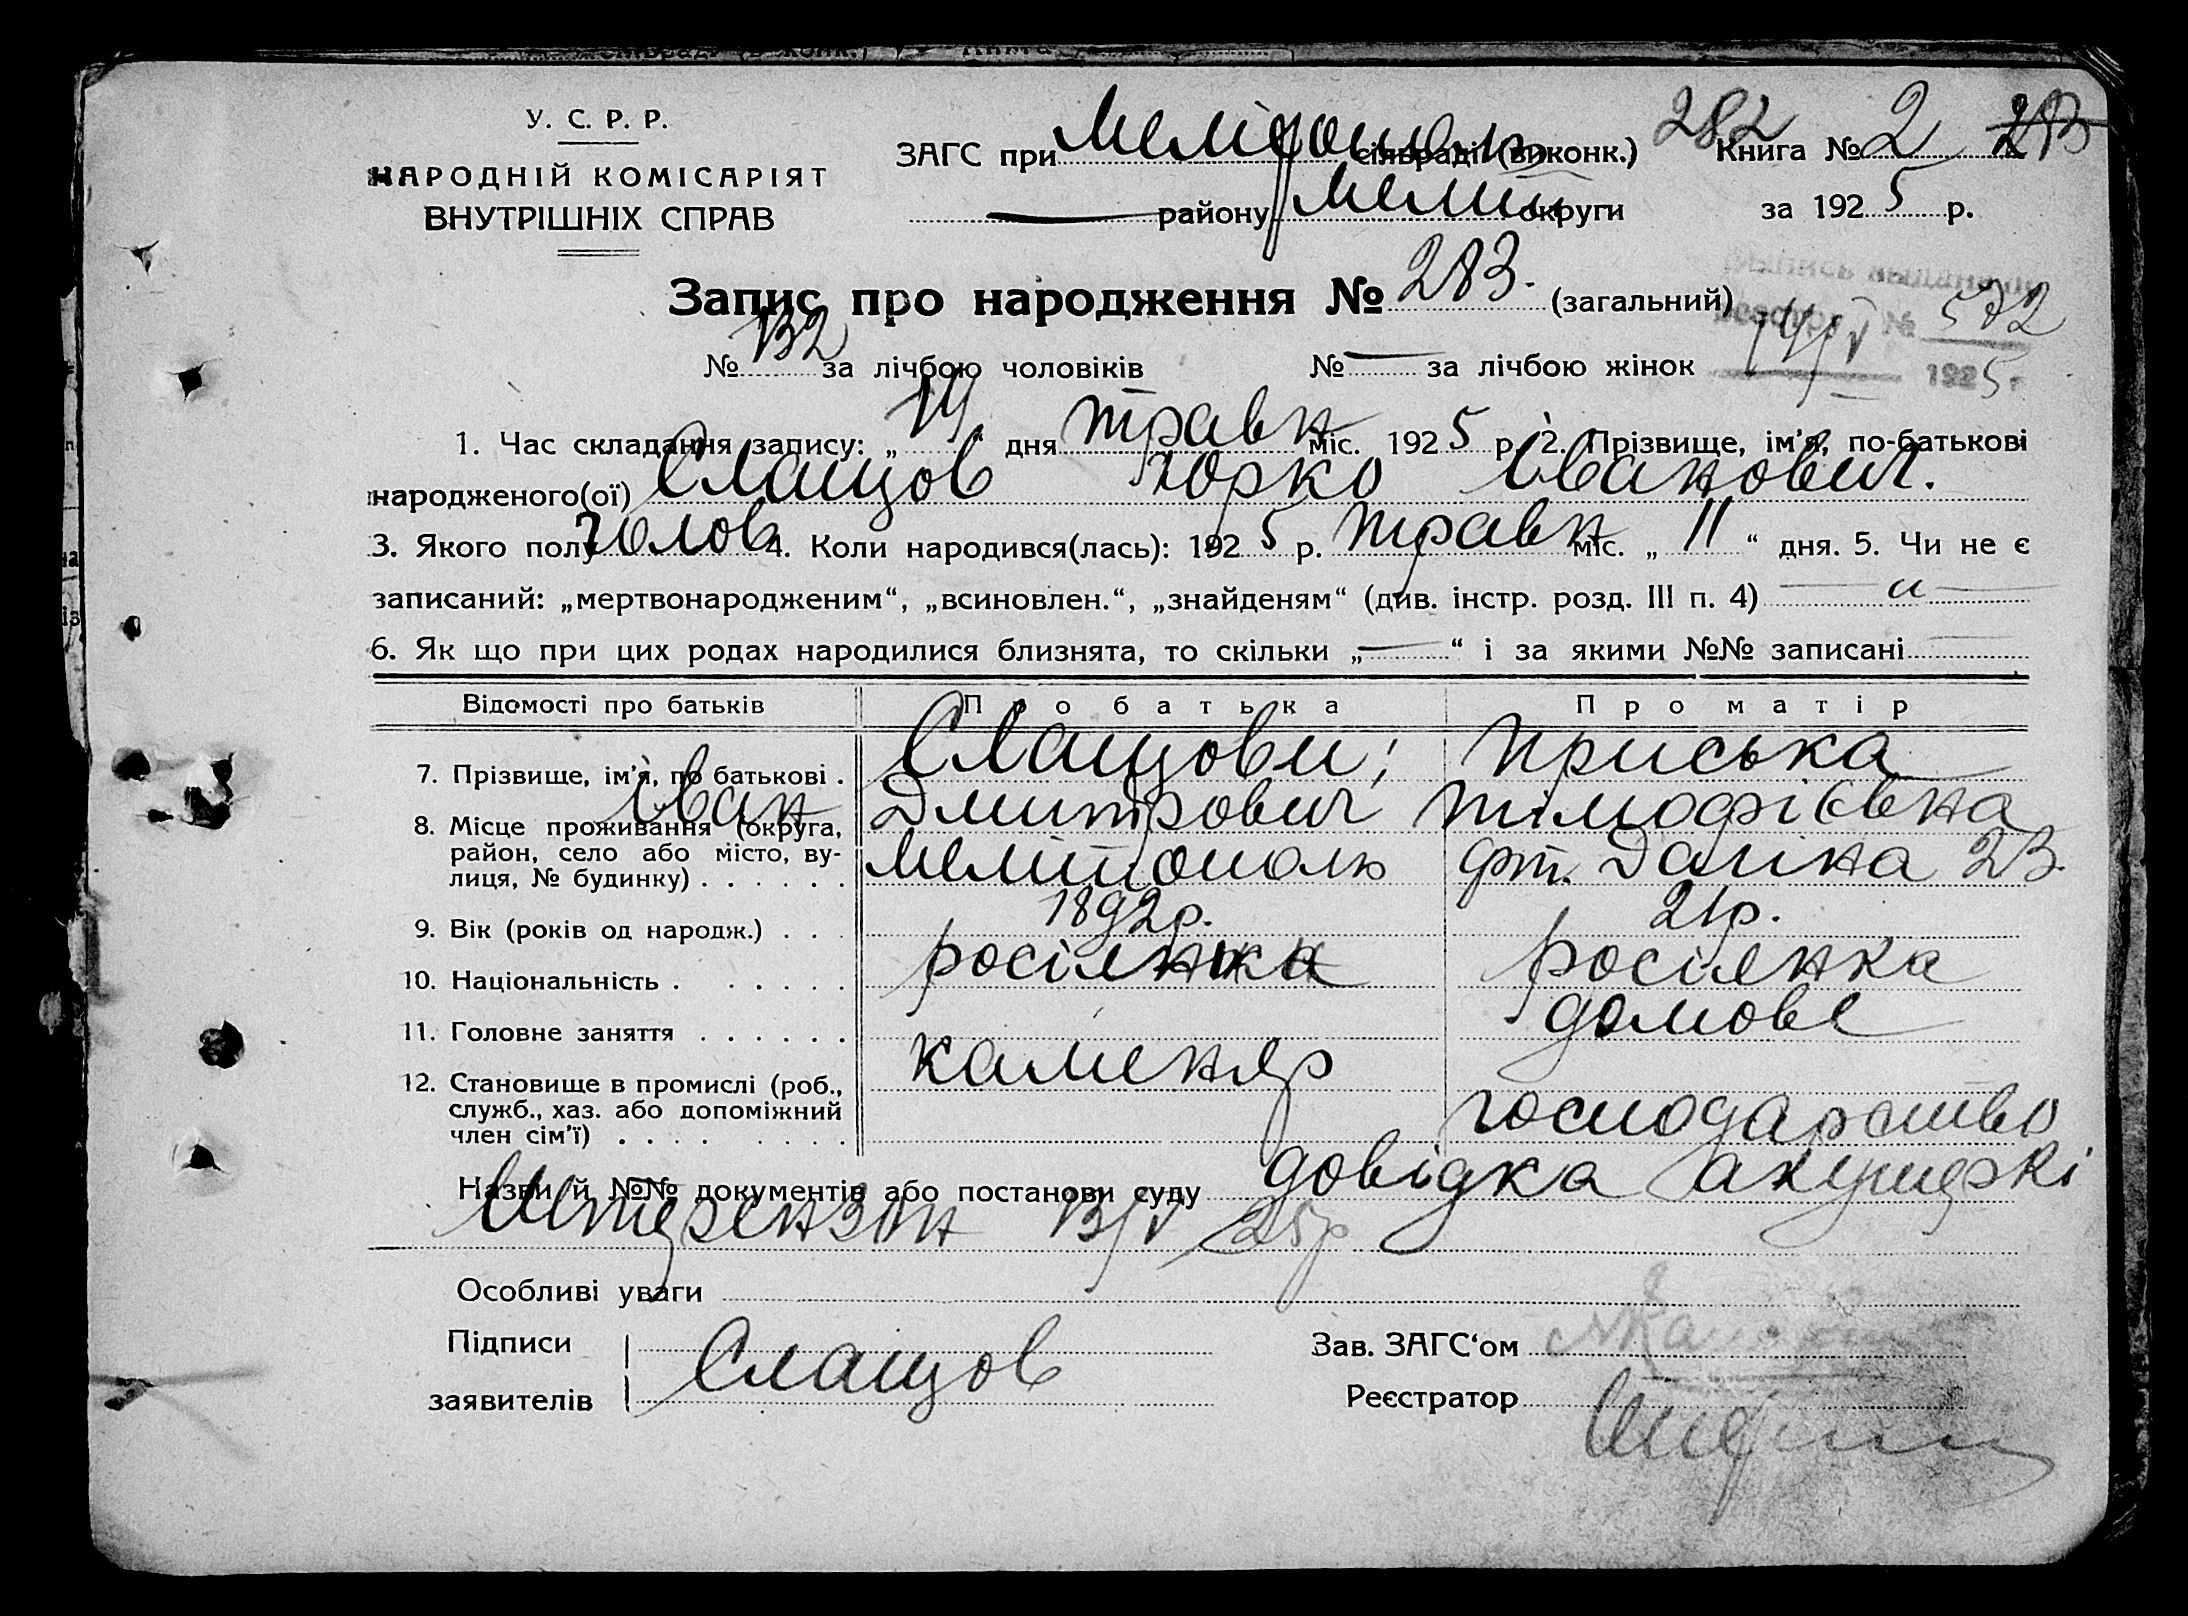 У. С. Р. Р.
НАРОДНІЙ КОМІСАРІЯТ
ВНУТРІШНІХ СПРАВ
ЗАГС при Мелітополь сільраді (виконк.) 282 Книга № 2 283
— району Меліт округи за 192 5 р.
Запис про народження № 283. (загальний)
№ 132 за лічбою чоловіків № — за лічбою жінок
№ 572
14/V 1925 г
1. Час складання запису: „ 14 “ дня травн міс. 192 5 р. 2. Прізвище, ім’я, по-батькові
народженого(ої) Слащов Юрко Іванович.
3. Якого полу чолов 4. Коли народився(лась): 192 5 р. травн міс. „ 11 “ дня. 5. Чи не є
записаний: „мертвонародженим“, „всиновлен.“, „знайденям“ (див. інстр. розд. III п. 4) — „ —
6. Як що при цих родах народилися близнята, то скільки „ — “ і за якими №№ записані —
Відомості про батьків Про батька Про матір
7. Прізвище, ім’я, по батькові . Слащови; Приська
Іван Дмитрович Тімофієвна
8. Місце проживання (округа,
район, село або місто, ву-
лиця, № будинку) . . . . . . Мелітополь фт. Даліна 23.
9. Вік (років од народж.) . . . 1892р. 21р.
10. Національність . . . . . . росіянка росіянка
11. Головне заняття . . . . . . каменяр домове
12. Становище в промислі (роб.,
служб., хаз. або допоміжний
член сім’ї) . . . . . . . . господарство
Назви й №№ документів або постанови суду довідка акушеркі
13/V 25р
Особливі уваги
Підписи
заявителів Слащов
Зав. ЗАГС‘ом
Реєстратор